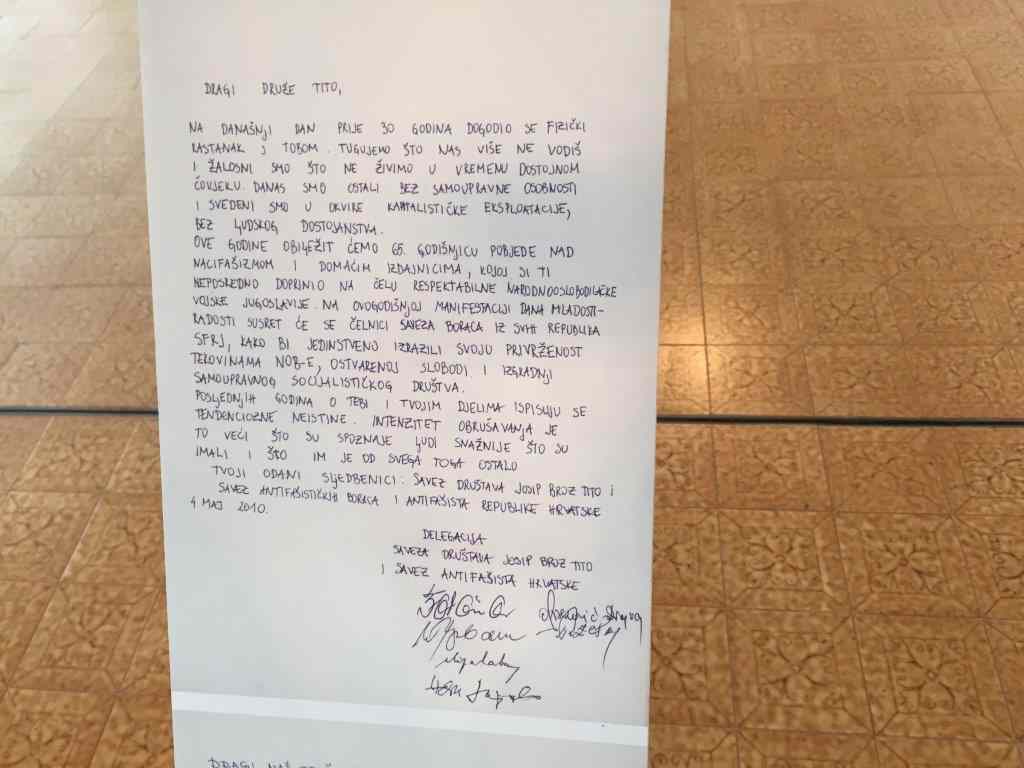 DRAGI DRUŽE TITO,
NA DANAŠNJI DAN PRIJE 30 GODINA DOGODIO SE FIZIČKI
RASTANAK S TOBOM. TUGUJEMO ŠTO NAS VIŠE NE VODIŠ
I ŽALOSNI SMO ŠTO NE ŽIVIMO U VREMENU DOSTOJNOM
ČOVJEKU. DANAS SMO OSTALI BEZ SAMOUPRAVNE OSOBNOSTI
I SVEDENI SMO U OKVIRE KAPITALISTIČKE EKSPLOATACIJE,
BEZ LJUDSKOG DOSTOJANSTVA.
OVE GODINE OBILJEŽIT ĆEMO 65. GODIŠNJICU POBJEDE NAD
NACIFAŠIZMOM I DOMAĆIM IZDAJNICIMA, KOJOJ SI TI
NEPOSREDNO DOPRINIO NA ČELU RESPEKTABILNE NARODNOOSLOBODILAČKE
VOJSKE JUGOSLAVIJE. NA OVOGODIŠNJOJ MANIFESTACIJI DANA MLADOSTI-
RADOSTI SUSRET ĆE SE ČELNICI SAVEZA BORACA IZ SVIH REPUBLIKA
SFRJ, KAKO BI JEDINSTVENO IZRAZILI SVOJU PRIVRŽENOST
TEKOVINAMA NOB-E, OSTVARENOJ SLOBODI I IZGRADNJI
SAMOUPRAVNOG SOCIJALISTIČKOG DRUŠTVA.
POSLJEDNJIH GODINA O TEBI I TVOJIM DJELIMA ISPISUJU SE
TENDENCIOZNE NEISTINE. INTENZITET OBRUŠAVANJA JE
TO VEĆI ŠTO SU SPOZNAJE LJUDI SNAŽNIJE ŠTO SU
IMALI I ŠTO IM JE OD SVEGA TOGA OSTALO
TVOJI ODANI SLJEDBENICI: SAVEZ DRUŠTAVA JOSIP BROZ TITO I
SAVEZ ANTIFAŠISTIČKIH BORACA I ANTIFAŠISTA REPUBLIKE HRVATSKE
4 MAJ 2010.
DELEGACIJA
SAVEZA DRUŠTAVA JOSIP BROZ TITO
I SAVEZ ANTIFAŠISTA HRVATSKE
DRAGI NAŠ